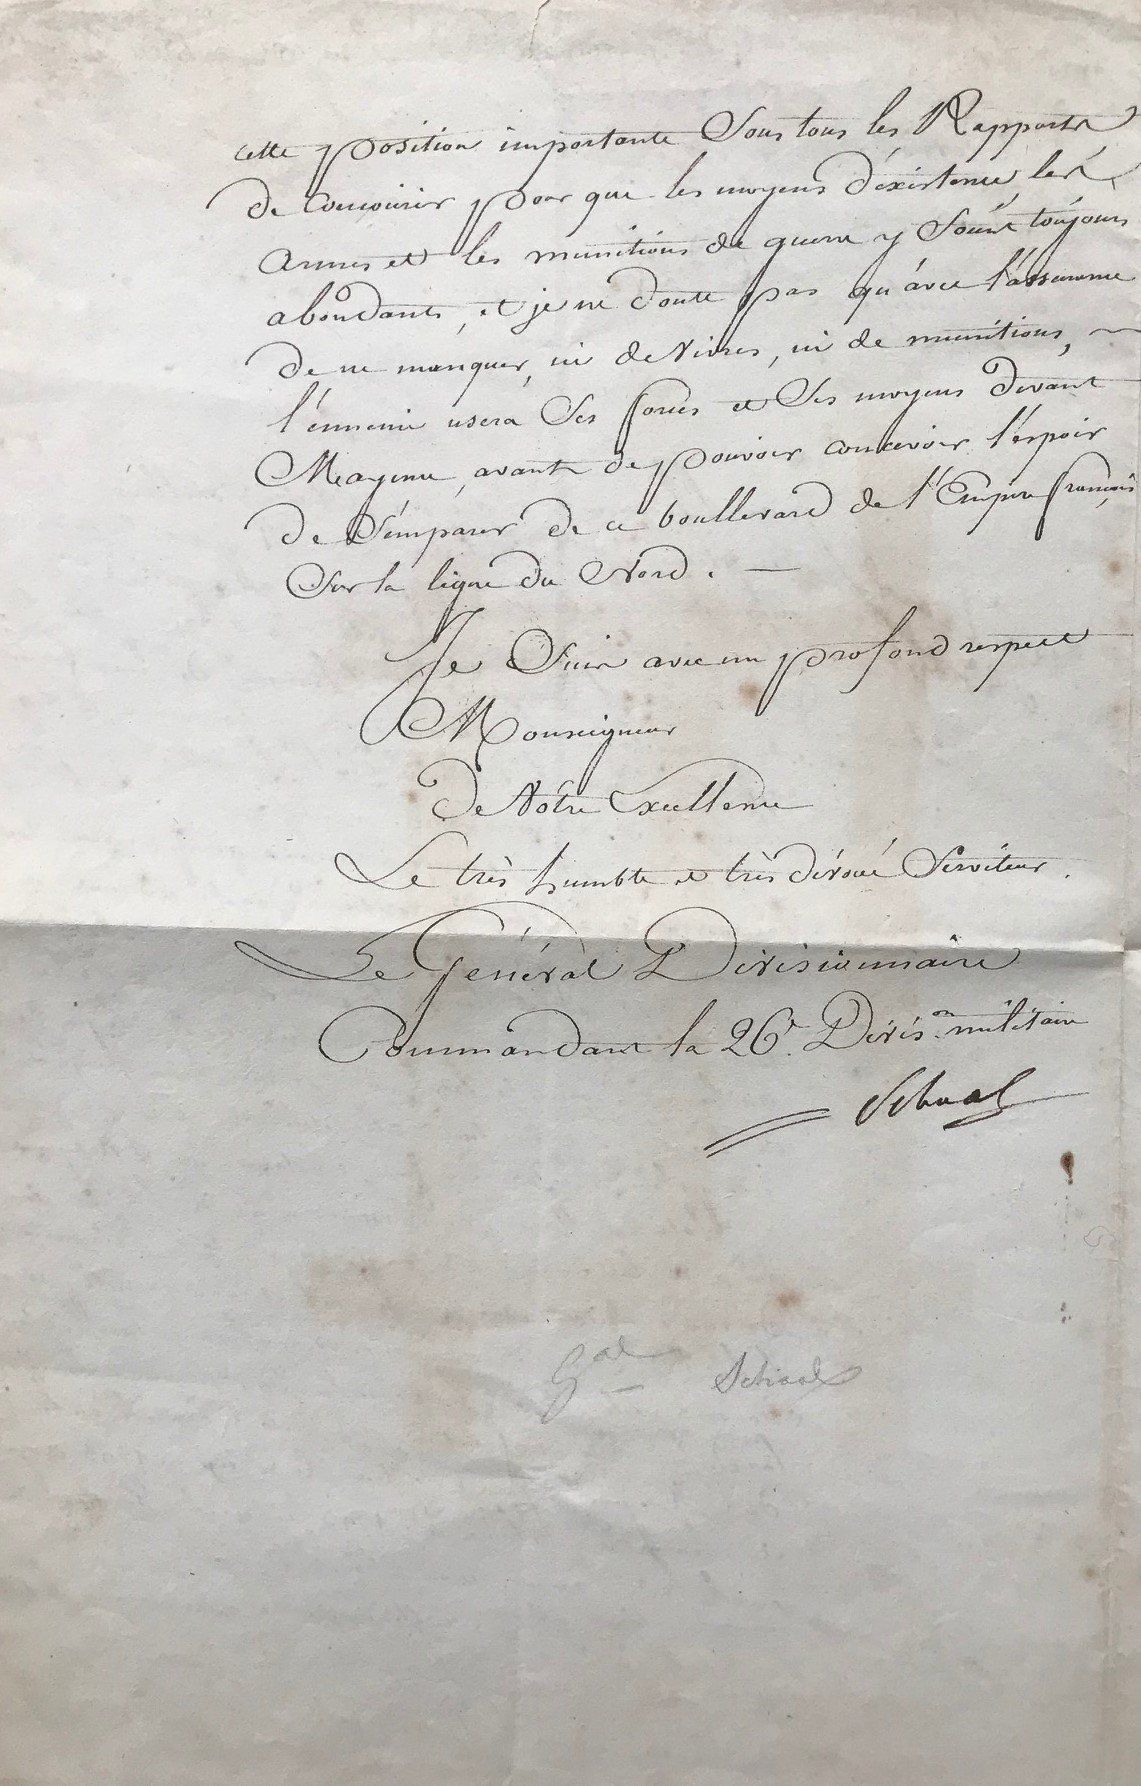 cette position importante Sous tous les Rapports
de concourir pour que les moyens d'éxistence, les
armes et les munitions de guerre y Soient toujours
abondants, et je ne doute pas qu'avec l'assurance
de ne manquer, ni de Vivres, ni de munitions,
l'ennemi usera Ses forces et Ses moyens devant
Mayence, avant de pouvoir concevoir l'espoir
de S'emparer de ce boullevard de l'Empire français
Sur la ligne du Nord. —
Je Suis avec un profond respect
Monseigneur
De Vôtre Excellence
Le très humble et très dévoué Serviteur.
Le Général Divisionnaire
Commandant la 26e. Divis.on militaire
Schaal
Gal Schaal